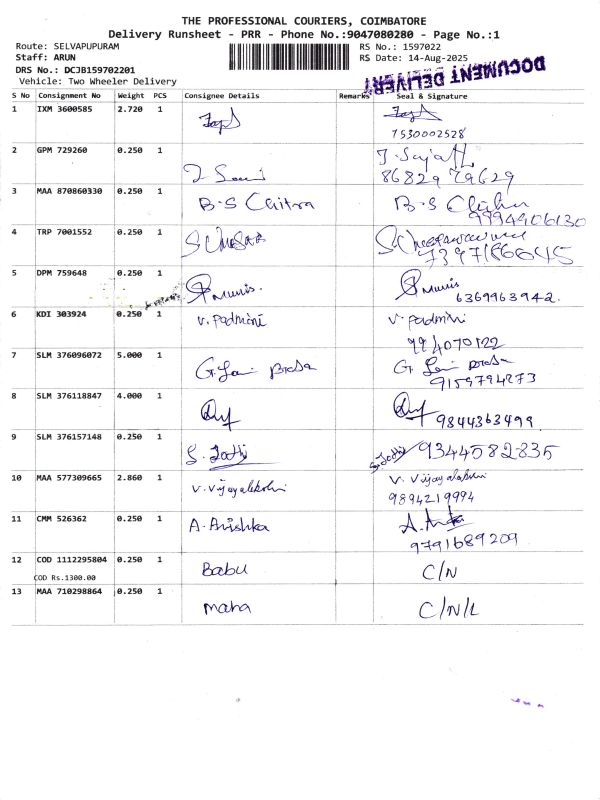 THE PROFESSIONAL COURIERS, COIMBATORE
Delivery Runsheet - PRR - Phone No.:9047080280 - Page No.:1
Route: SELVAPUPURAM
RS No.: 1597022
Staff: ARUN
RS Date: 14-Aug-2025
DRS No.: DCJB159702201
Vehicle: Two Wheeler Delivery
DOCUMENT DELIVERY
S No Consignment No Weight PCS Consignee Details Remarks Seal & Signature
1 IXM 3600585 2.720 1
7530002528
2 GPM 729260 0.250 1
86829 79629
3 MAA 870860330 0.250 1 B.S Chitra B.S
9994406130
4 TRP 7001552 0.250 1
7397186645
5 DPM 759648 0.250 1
6369963942.
6 KDI 303924 0.250 1 V. Padmini V. Padmini
994070122
7 SLM 376096072 5.000 1
9159794273
8 SLM 376118847 4.000 1
9844363499
9 SLM 376157148 0.250 1 S. Jothi S. Jothi 9344582835
10 MAA 577309665 2.860 1 V. Vijayalakshmi V. Vijayalakshmi
9894219994
11 CMM 526362 0.250 1 A. Anishka
9791689209
12 COD 1112295804 0.250 1 Babu C/N
COD Rs.1300.00
13 MAA 710298864 0.250 1 Maha C/N/L